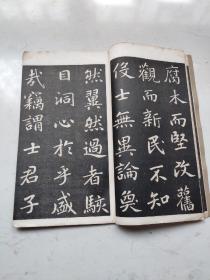 腐木而堅改舊
觀而新民不知
役士無異論奐
然翼然過者駭
目洞心於乎盛
哉竊謂士君子